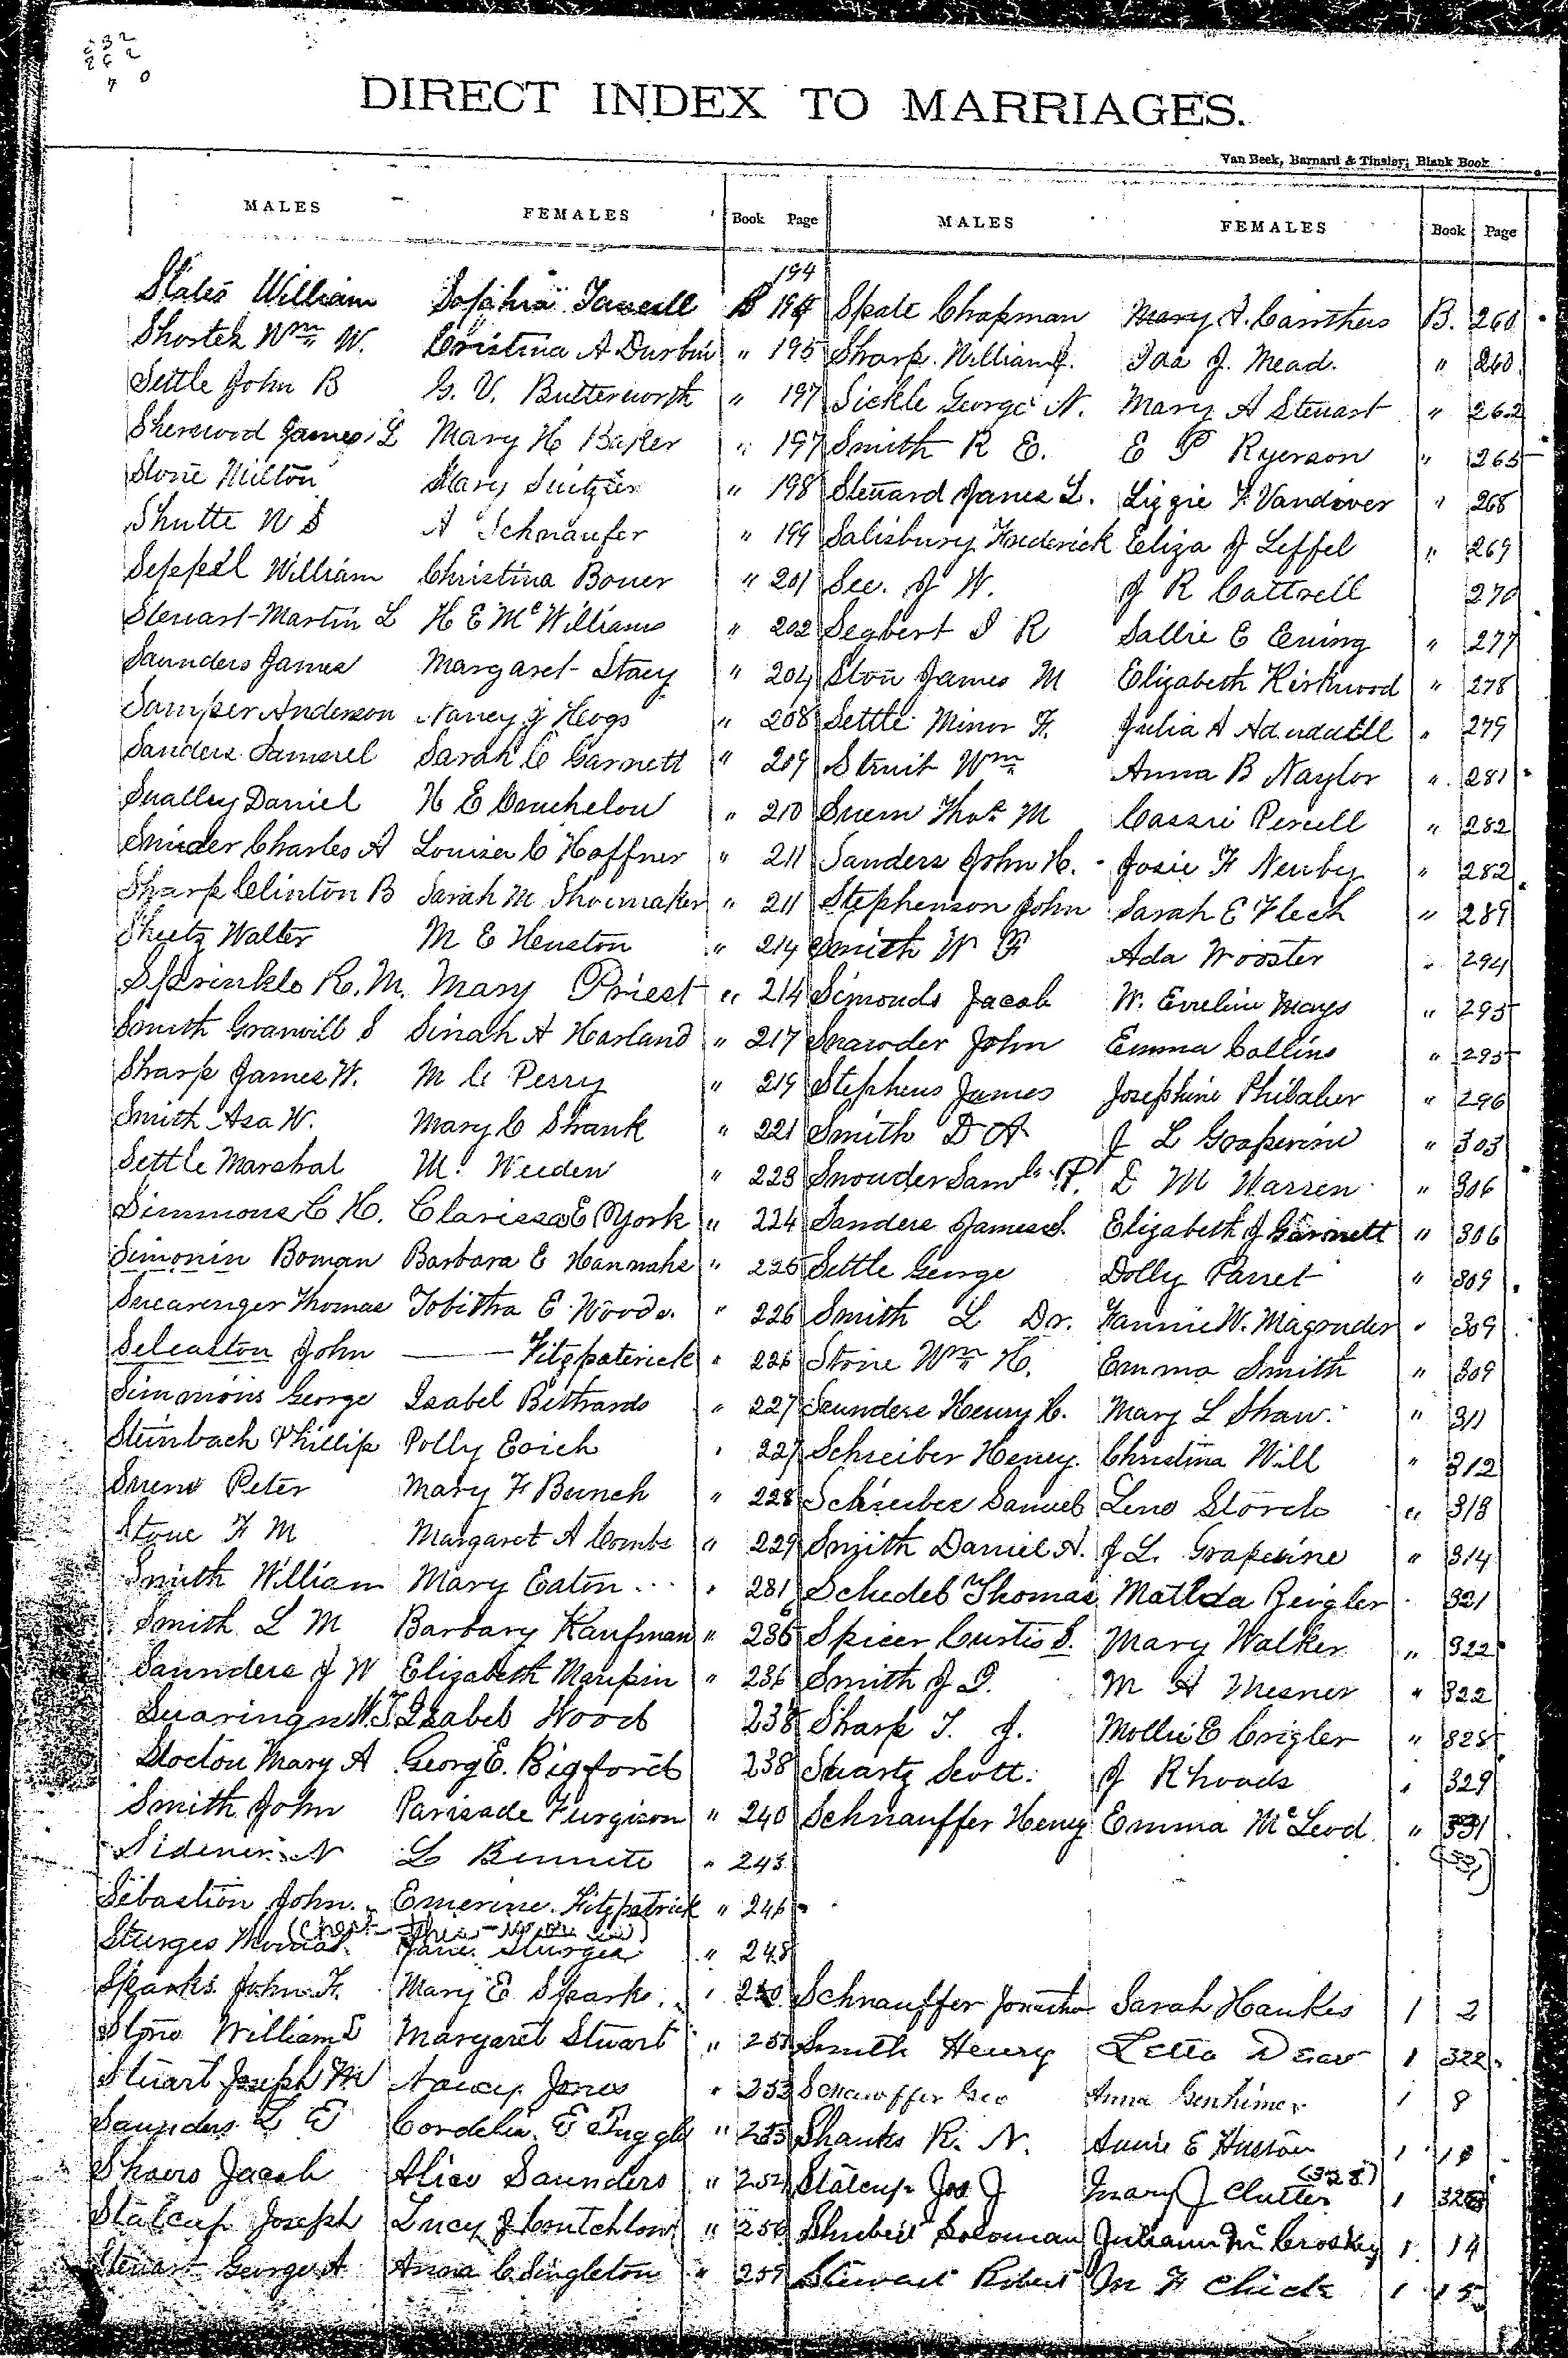 DIRECT INDEX TO MARRIAGES.
Van Beek, Barnard & Tinsley; Blank Book
MALES FEMALES Book Page MALES FEMALES Book Page
194
States William Sophia B 194 Spate Chapman Mary A. Canthers B. 260
Shortek Wm W. Cristina A Durbin " 195 Sharp William J. Ida J. Mead. " 260
Settle John B G. V. Butterworth " 197 Sickle George N. Mary A Stewart " 262
Sherwood James L Mary H Baker " 197 Smith R E. E P Ryerson " 265
Stone Milton Mary " 198 Steward James L. Lizzie F Vandiver " 268
Shutte N S A Schnaufer " 199 Salisbury Frederick Eliza J Leffel " 269
Seppell William Christina Bouer " 201 See. J W. J R Cattrell 270
Stewart Martin L H E McWilliams " 202 Segbert S R Sallie E Ewing " 277
Saunders James Margaret Stacy " 204 Ston James M Elizabeth Kirkwood " 278
Samper Anderson Nancy J Hevgs " 208 Settle Minor F. Julia A " 279
Sanders Samuel Sarah C Garnett " 209 Struit Wm Anna B Naylor " 281
Smalley Daniel H E Couchelou " 210 Suem Thos M Cassie Percell " 282
Snider Charles A Louisa C Haffner " 211 Sanders John H. Josie F Newby " 282
Sharp Clinton B Sarah M Shoemaker " 211 Stephenson John Sarah E Flech " 289
Sheetz Walter M E Henston " 214 Smith W F Ada Wooster " 294
Sprinkle R. M. Mary Priest " 214 Simonds Jacob W. Eveline Mays " 295
Smith Granvill S Sinah A Harland " 217 Snawder John Emma Collins " 295
Sharp James W. M C Perry " 219 Stephens James Josephine Philaber " 296
Smith Asa W. Mary C Shank " 221 Smith D A J L Grapevine " 303
Settle Marshal M. Weeden " 223 Snouder Saml P. D M Warren " 306
Simmons C H. Clarissa E York " 224 Sanders James S. Elizabeth J Garnett " 306
Simonin Boman Barbara E Hannahs " 225 Settle George Dolly Parret " 309
Swearenger Thomas Tobitha E Woods. " 226 Smith L Dr. Fannie W. Magruder " 309
Selcaston John —— Fitzpaterick " 226 Stone Wm H. Emma Smith " 309
Simmons George Isabel Bittrands " 227 Saunders Henry C. Mary L Shaw. " 311
Steinbach Phillip Polly Eoich " 227 Schreiber Heney. Christina Will " 312
Sueno Peter Mary F Bunch " 228 Schreiber Samuel Leno Storck " 313
Stone F M Margaret A Combs " 229 Smith Daniel A. J L. Grapevine " 314
Smith William Mary Eaton " 231 Schedeb Thomas Matilda Zeigler 321
Smith L M Barbary Kaufman " 236 Spicer Curtis S. Mary Walker " 322
Saunders J W Elizabeth Maupin " 236 Smith J D. M A Mesner " 322
Suaringn W. T. Isabel Wood 238 Sharp T. J. Mollie E Crigler " 328
Stocton Mary A Georg E. Bigford 238 Suartz Scott. J Rhoads " 329
Smith John Parisade Furgison " 240 Schnauffer Heney Emma McLeod " 331
Sidener N L Bennett " 243
Sebastion John. Emerine. Fitzpatrick " 246
Sturges Thomas. Jane Sturges " 248
Sparks John F. Mary E Sparks " 250 Schnauffer Jonathan Sarah Hawkes 1 2
Stone William S Margaret Stuart " 251 Smith Henry Letta 1 322
Stuart Joseph M Nancy Jones " 253 Schnauffer Geo Anna Genhimer 1 8
Saunders L E Cordelia E Tuggle " 253 Shanks R. N. Annie E 1 10
(328)
Shaers Jacob Alice Saunders " 254 Statcup Jos J Mary J Clutter 1 328
Statcup Joseph Lucy J Coutchlow " 256 Shubert Soloman Juliann McCroskey 1 14
Stewart George A Anna C Singleton " 259 Stewart Robert M F Chick 1 15